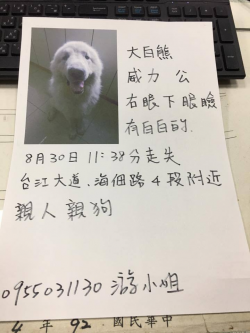 大白熊
威力 公
右眼下眼瞼
有白白的
8月30日 11:38分走失
台江大道、海佃路4段附近
親人親狗
0955031130 游小姐
4 年 92 國民華中